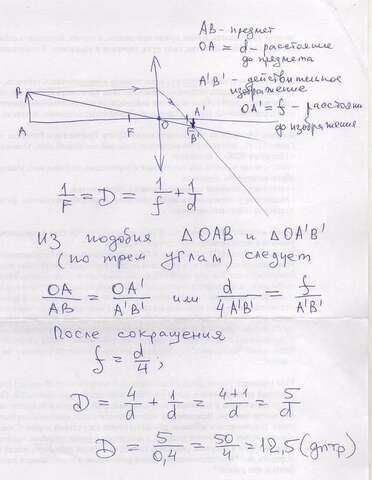 AB - предмет
OA = d - расстояние
до предмета
A'B' - действительное
изображение
OA' = f - расстояни
до изображения
B
A
F
O
A'
F
B'
1/F = D = 1/f + 1/d
из подобия △OAB и △OA'B'
(по трем углам) следует
OA/AB = OA'/A'B' или d/4A'B' = f/A'B'
После сокращения
f = d/4;
D = 4/d + 1/d = 4+1/d = 5/d
D = 5/0,4 = 50/4 = 12,5 (дптр)